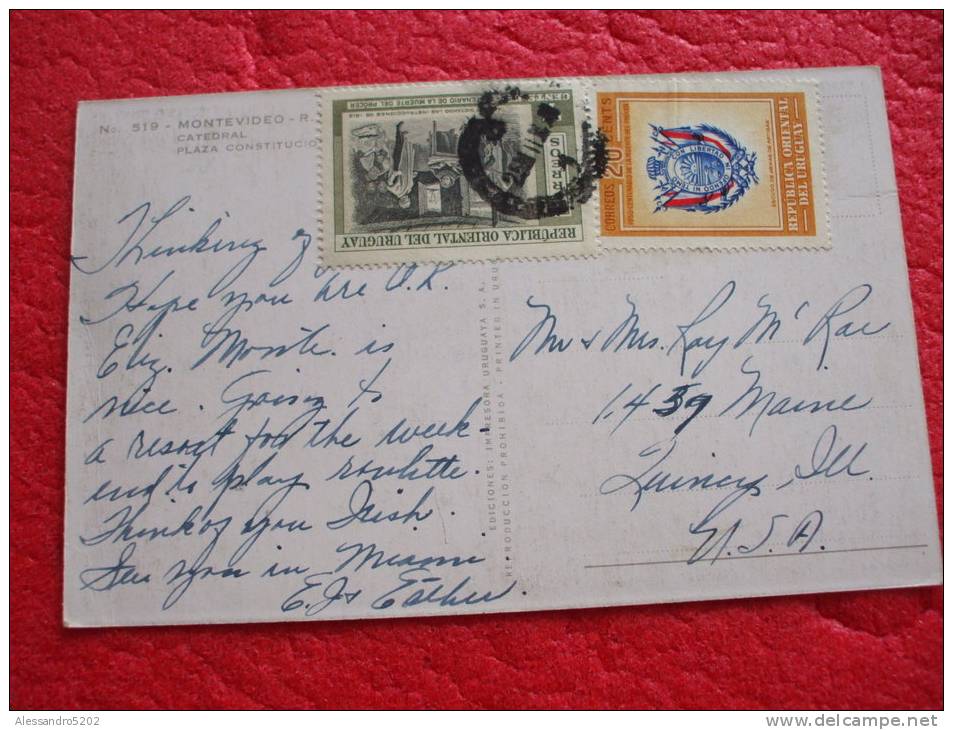 No. 519 - MONTEVIDEO - R.
CATEDRAL
PLAZA CONSTITUCIO
REPÚBLICA ORIENTAL DEL URUGUAY
CORREOS 20 CENTS
CON LIBERTAD NI OFENDO NI TEMO
REPÚBLICA ORIENTAL
DEL URUGUAY
Thinking of
Hope you are O.K.
Monte. is
nice. Going to
a resort for the week-
end to play roulette.
Think of you Irish.
See you in Miami
E.J. & Esther.
EDICIONES: IMPRESORA URUGUAYA S. A.
REPRODUCCION PROHIBIDA - PRINTED IN URUG
Mr & Mrs. Ray McRae
1439 Maine
Quincy, Ill
U.S.A.
Alessandro5202
www.delcampe.net